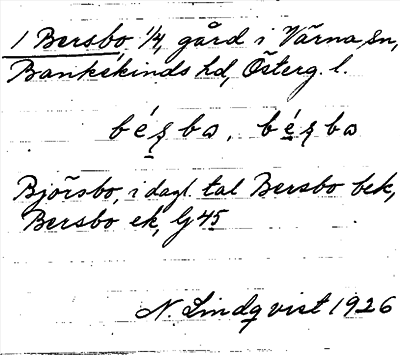 1 Bersbo 1/4, gård i Värna sn,
Bankekinds hd, Österg. l.
Björsbo, i dagl. tal Bersbo bek,
Bersbo ek, G 45
N. Lindqvist 1926